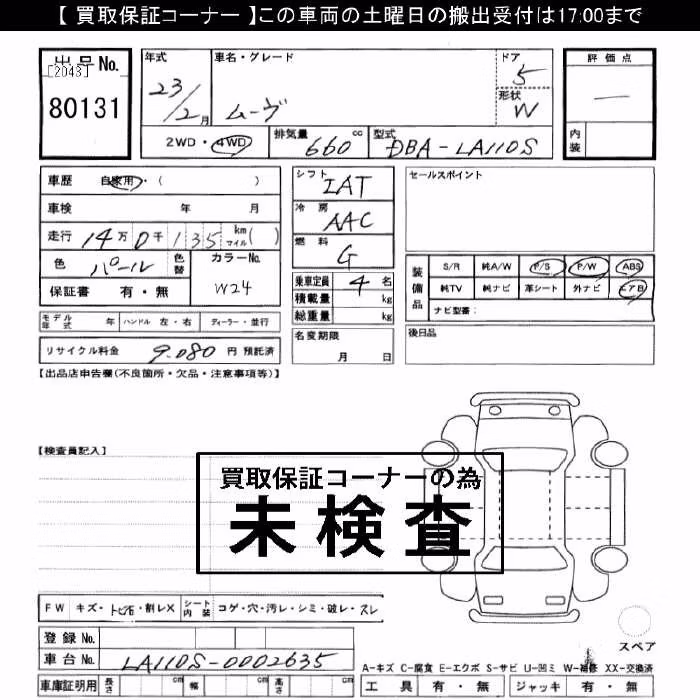 【 買取保証コーナー 】この車両の土曜日の搬出受付は17:00まで
出品No.
[2043]
80131
年式
23/2月
車名・グレード
ムーヴ
ドア
5
形状
W
評価点
—
内装
2WD・4WD
排気量
660 cc
型式
DBA-LA110S
車歴 自家用・( )
車検 年 月
走行 14万0千135 km マイル( )
色 パール
色替
カラーNo.
W24
保証書 有・無
シフト
IAT
冷房
AAC
燃料
G
乗車定員 4 名
積載量 kg
総重量 kg
セールスポイント
装備品
S/R 純A/W P/S P/W ABS
純TV 純ナビ 革シート 外ナビ エアB
ナビ型番：
モデル年式 年 ハンドル 左・右 ディーラー・並行
リサイクル料金 9,080 円 預託済
名変期限
月 日
後日品
【出品店申告欄(不良箇所・欠品・注意事項等)】
【検査員記入】
買取保証コーナーの為
未検査
FW キズ・トビ石・割レX シート内装 コゲ・穴・汚レ・シミ・破レ・スレ
スペア
登録No.
車台No. LA110S-0002635
A―キズ C―腐食 E―エクボ S―サビ U―凹ミ W―補修 XX―交換済
車庫証明用 長さ cm 幅 cm 高さ cm
工具 有・無 ジャッキ 有・無